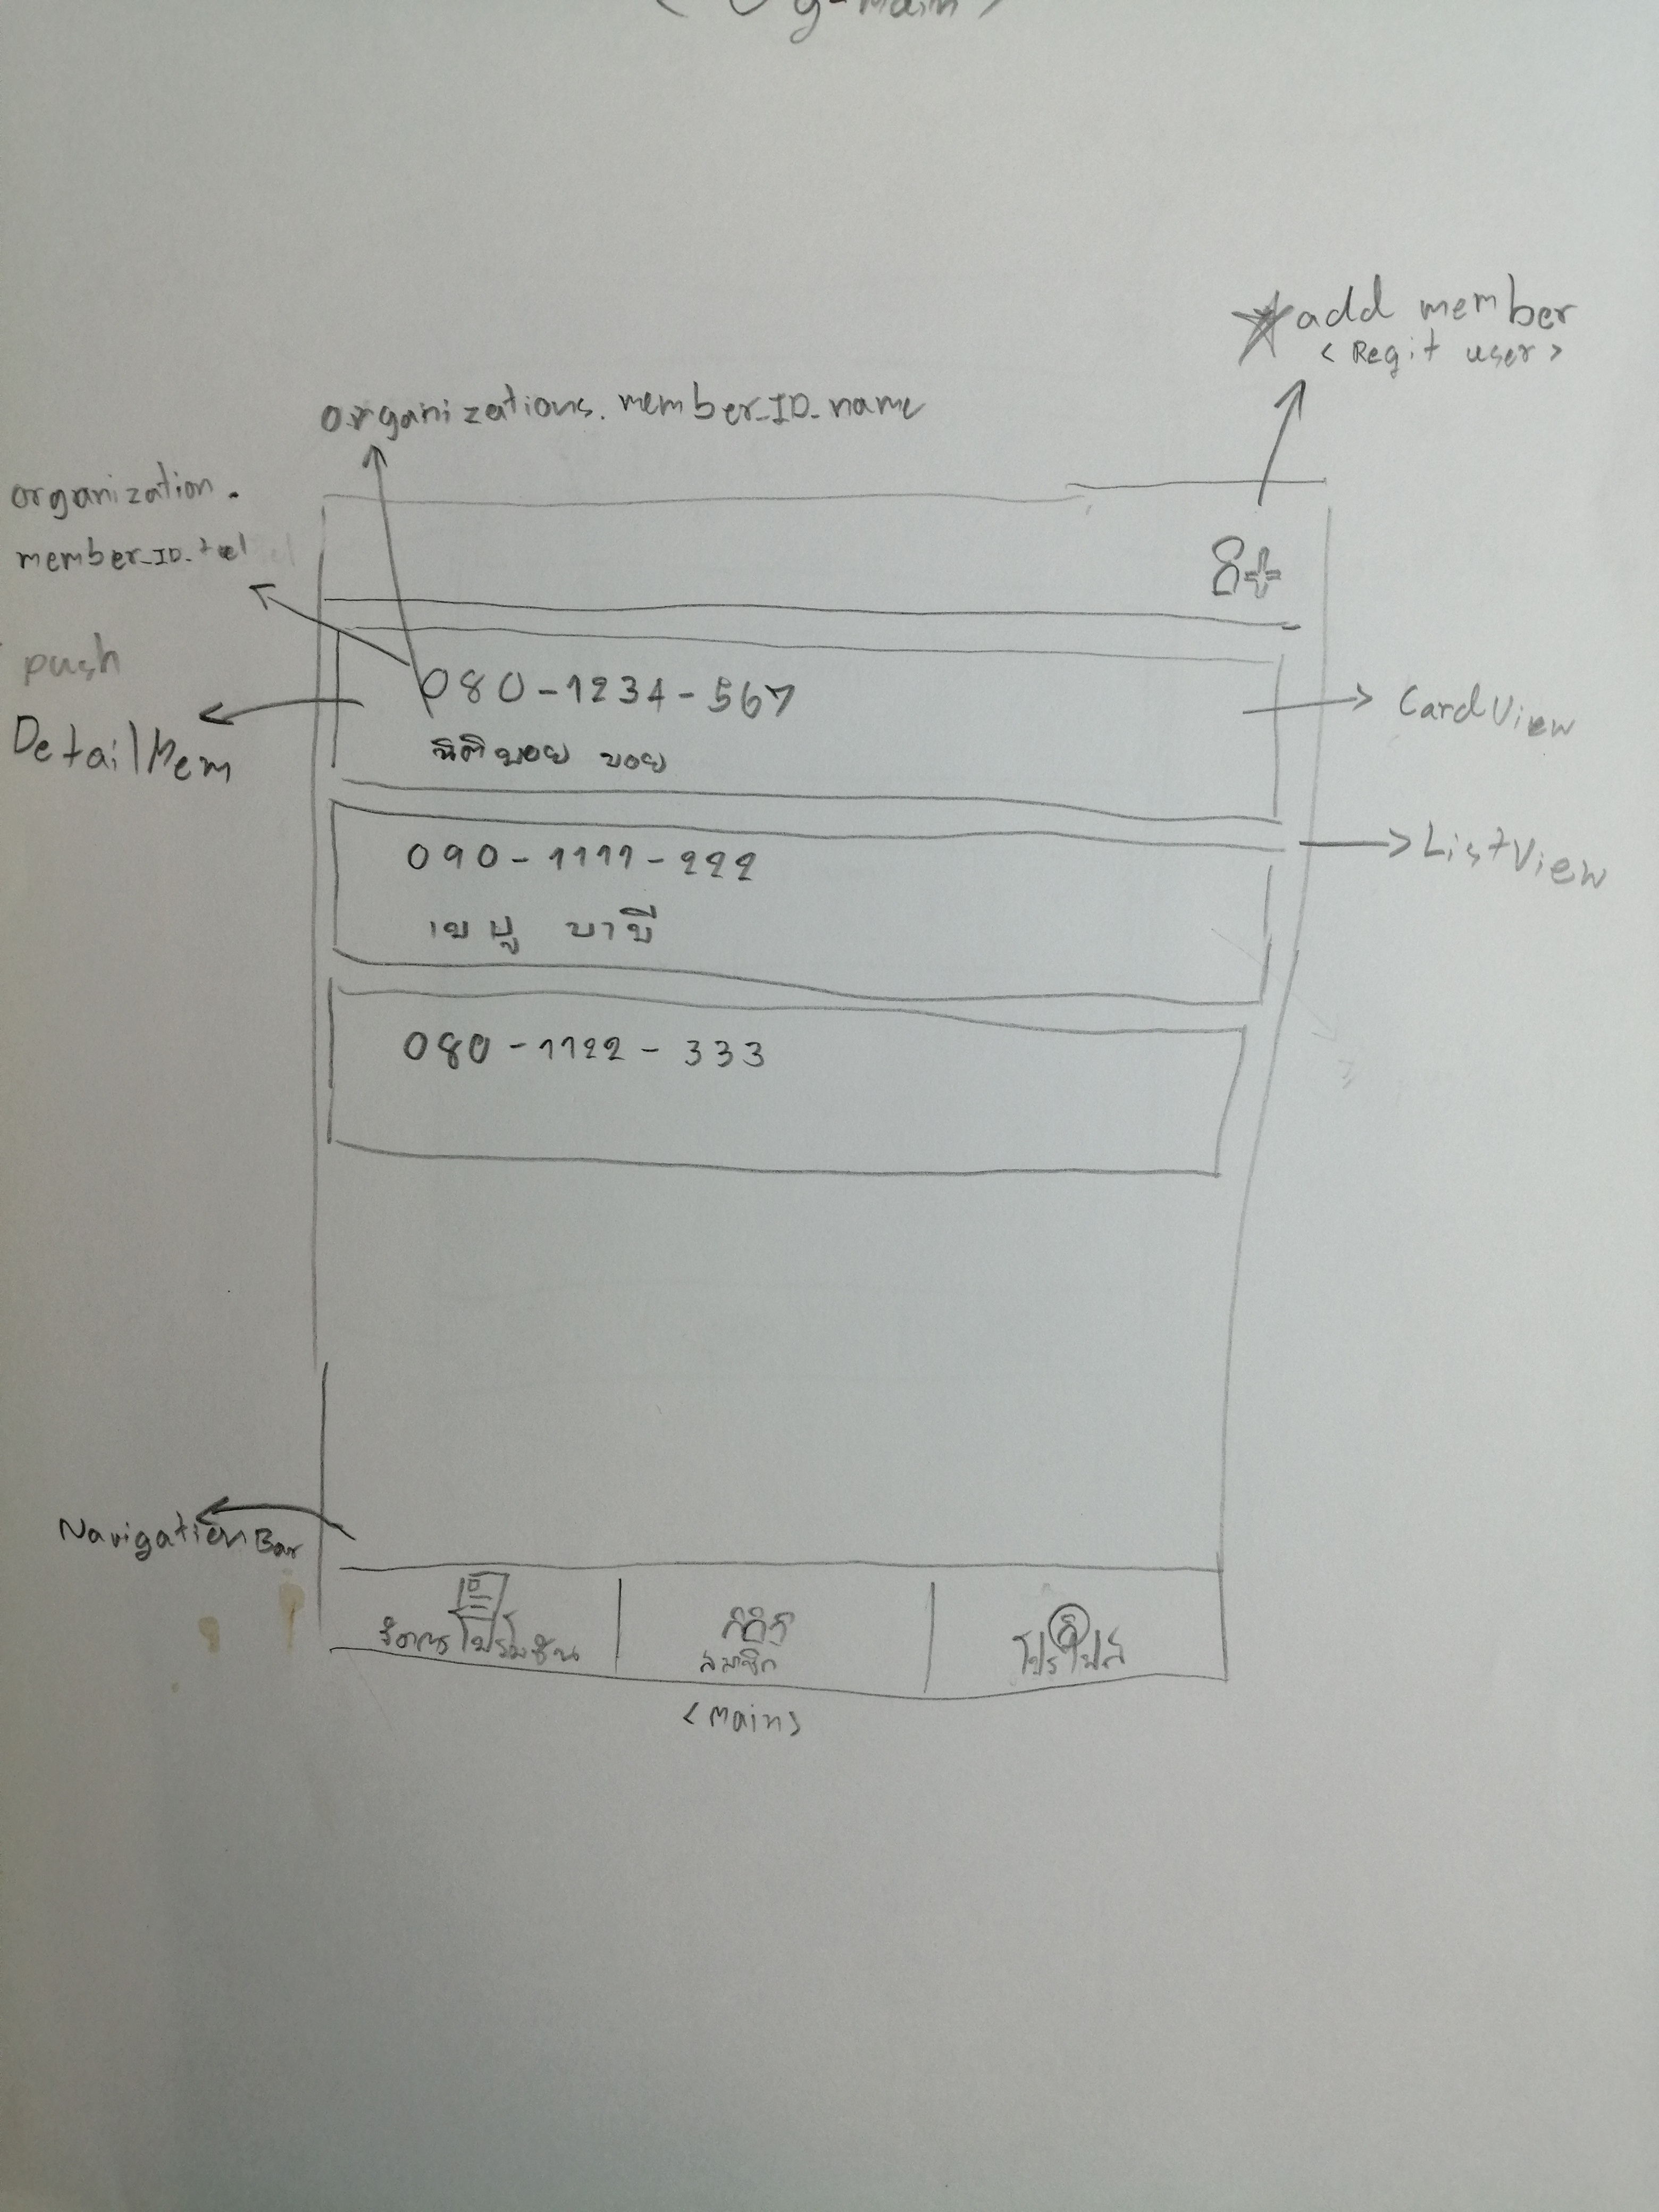 g-main)
add member
< Regit user >
organizations.member_ID_name
organization.
member_ID_tel
8+
push
DetailMem
080-1234-567
นิติบอย บอย
CardView
090-1111-222
เบบู บาบี
ListView
080-1122-333
NavigationBar
จัดการโปรโมชัน
สมาชิก
โปรไฟล์
<main>